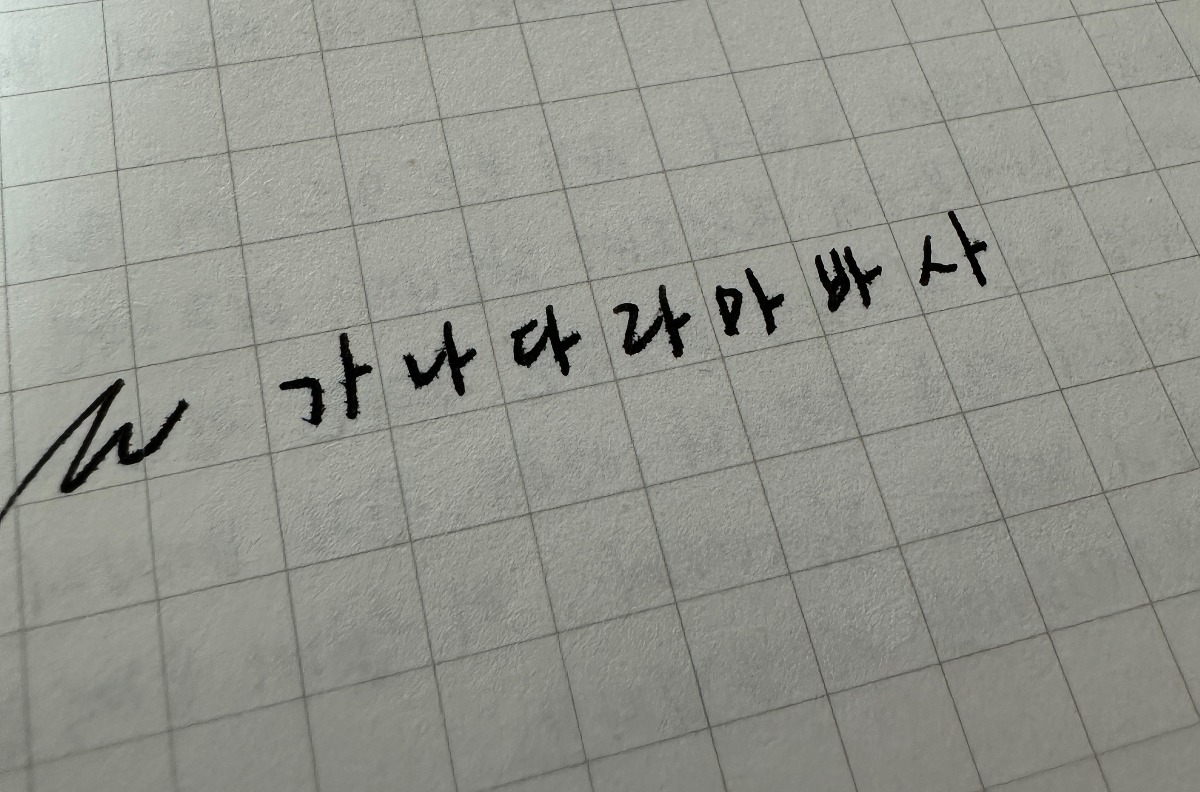 가나다라마바사